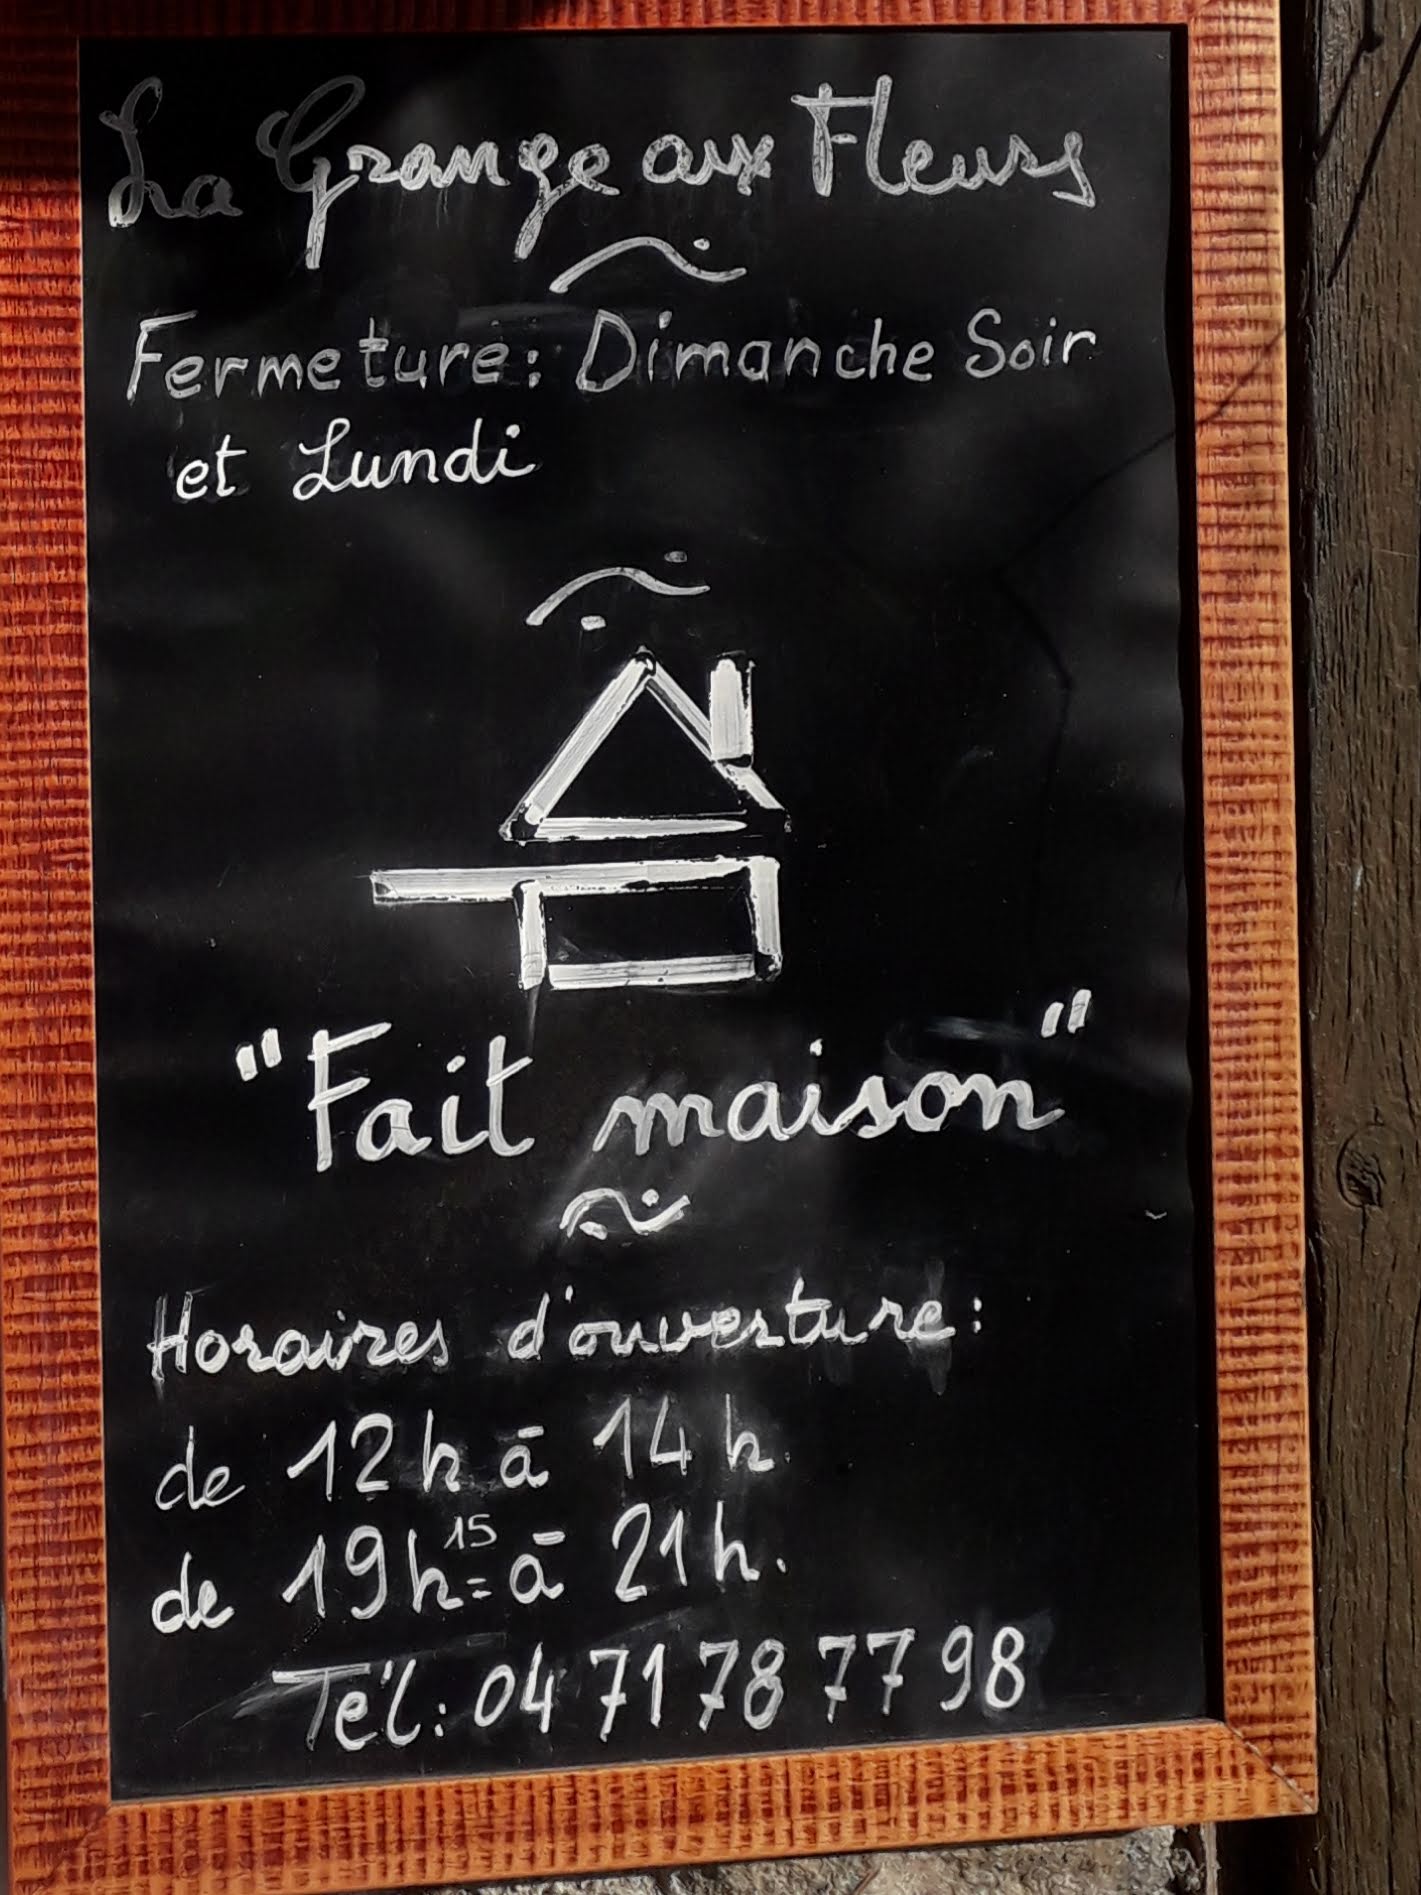 La Grange aux Fleurs
Fermeture: Dimanche Soir
et Lundi
"Fait maison"
Horaires d'ouverture:
de 12h à 14h.
de 19h15 à 21h.
Tél: 04 71 78 77 98